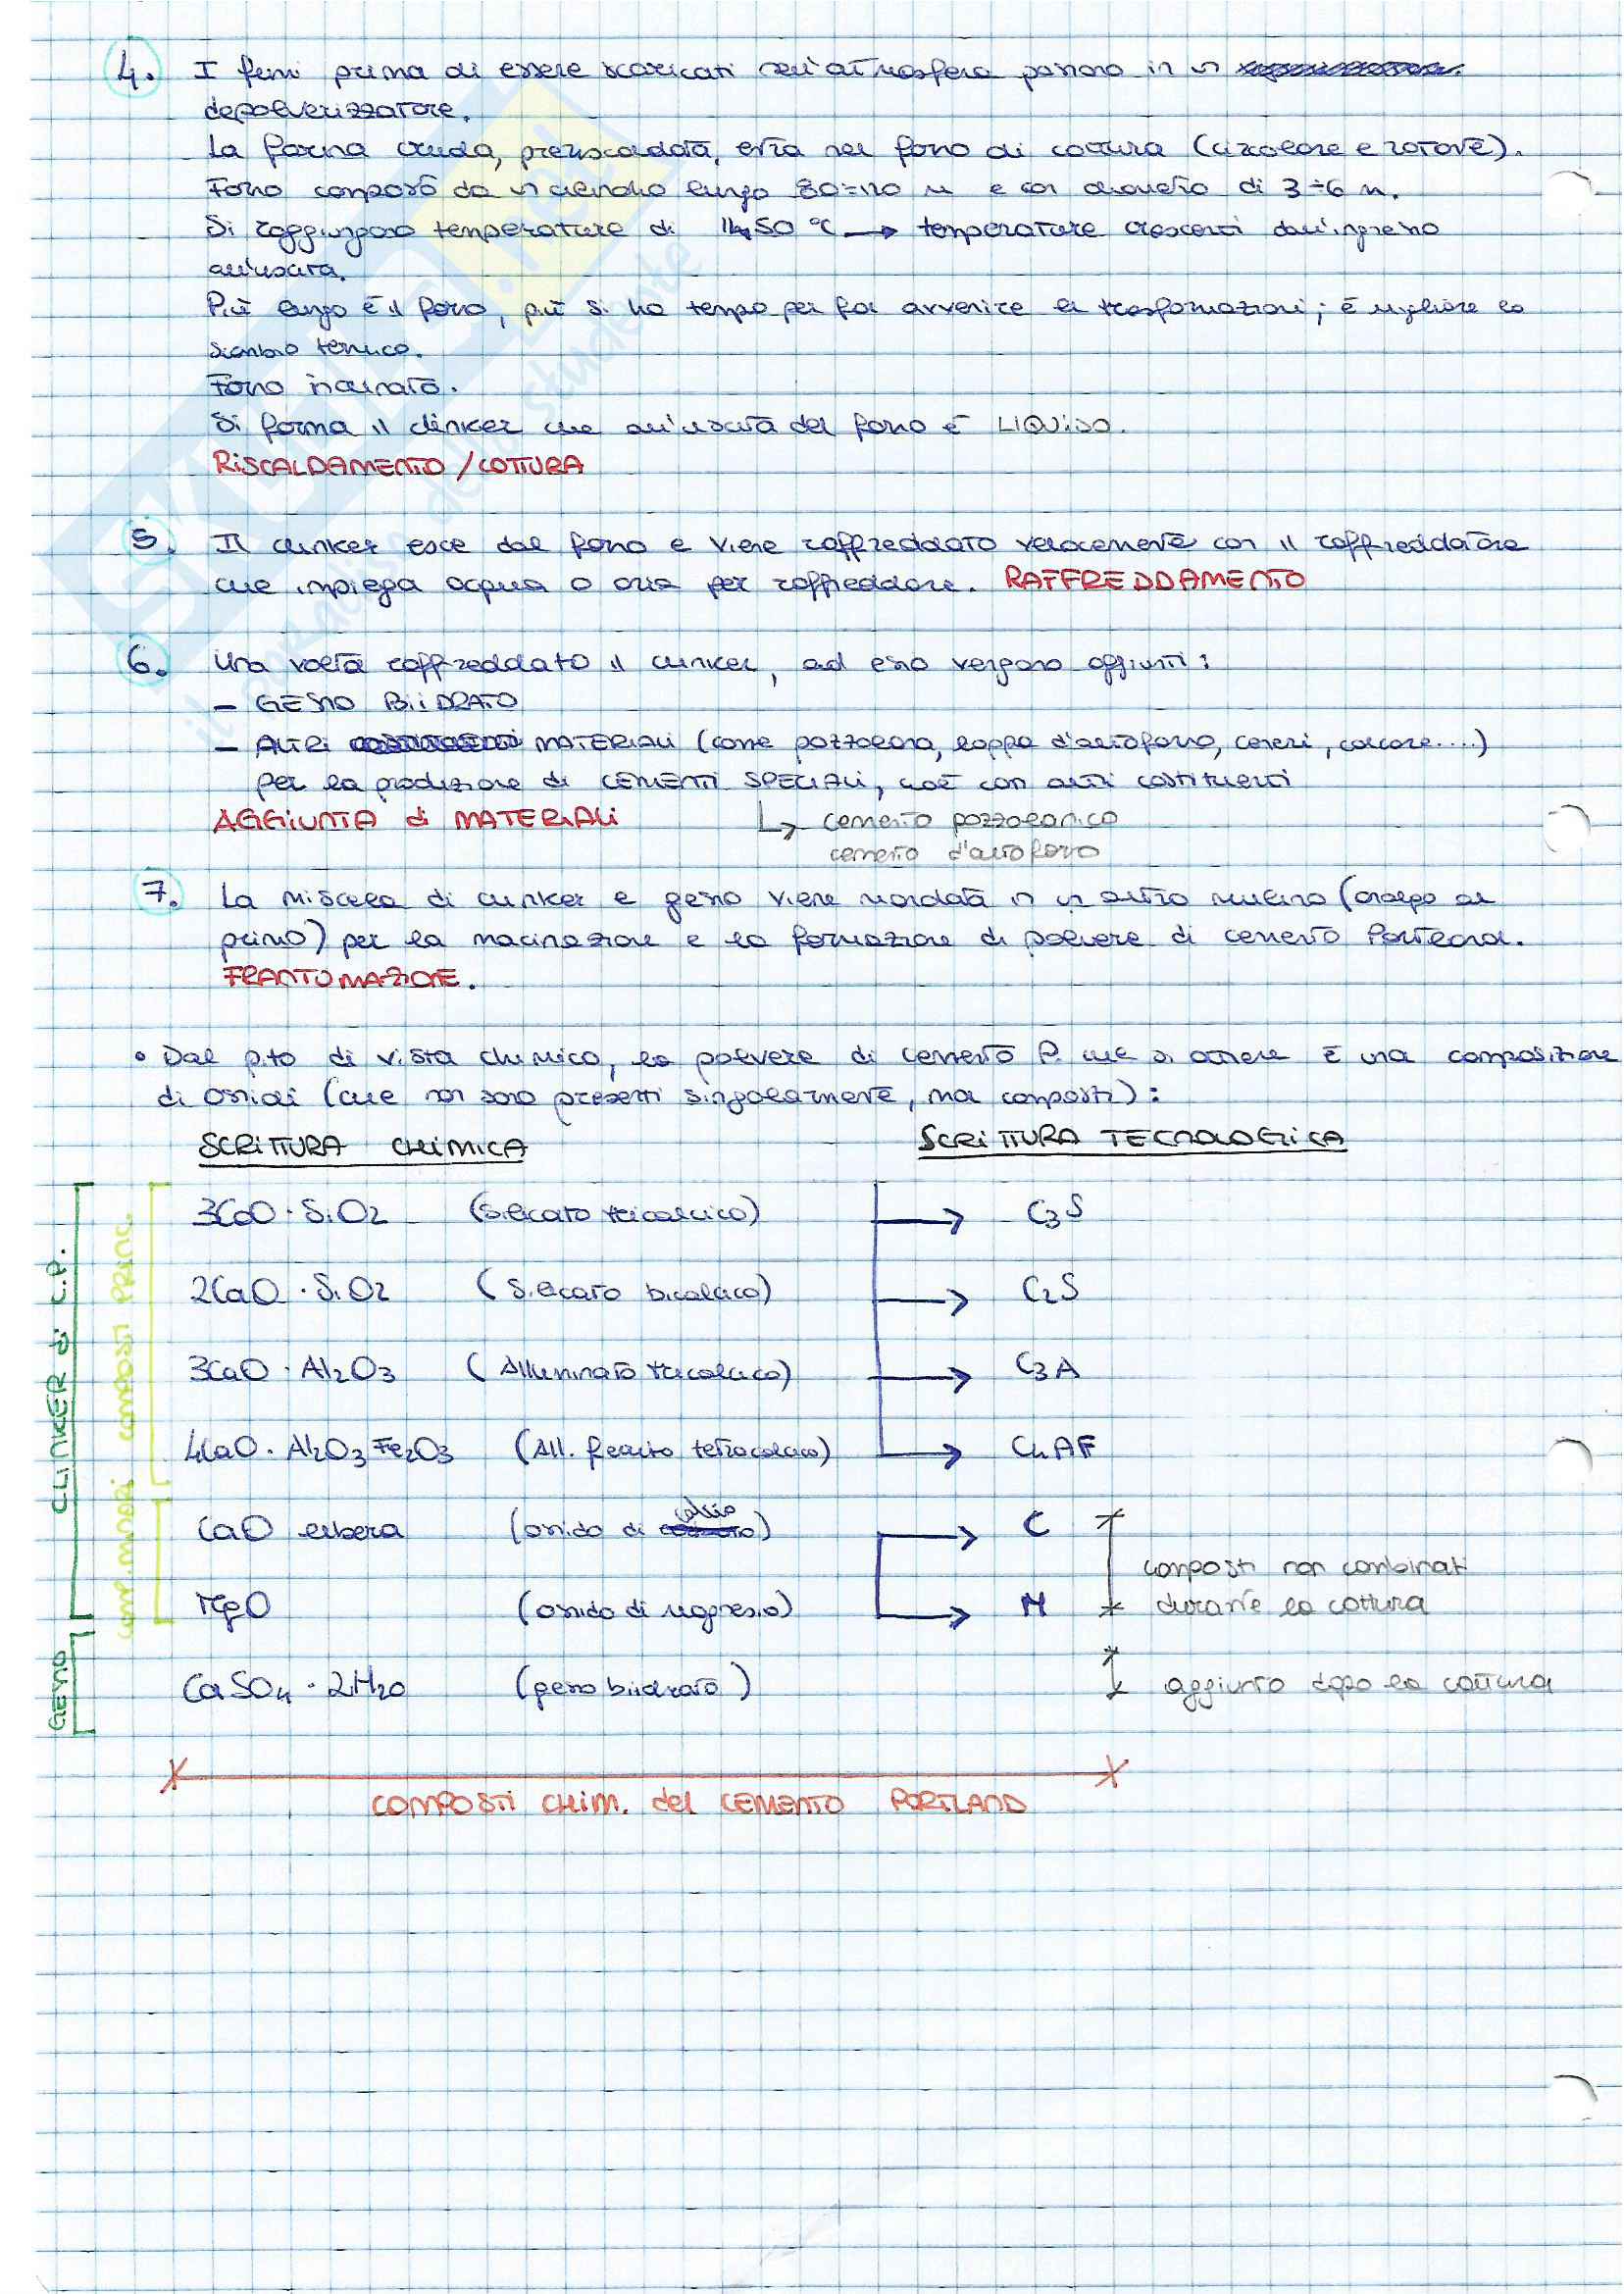 4. I fumi prima di essere scaricati nell'atmosfera passano in un
depolverizzatore.
La farina cruda, preriscaldata, entra nel forno di cottura (circolare e rotante).
Forno composto da un cilindro lungo 80÷110 m e con diametro di 3÷6 m.
Si raggiungono temperature di 1450 °C → temperature crescenti dall'ingresso
all'uscita.
Più lungo è il forno, più si ha tempo per far avvenire le trasformazioni; è migliore lo
scambio termico.
Forno inclinato.
Si forma il clinker che all'uscita del forno è LIQUIDO.
RISCALDAMENTO / COTTURA
5. Il clinker esce dal forno e viene raffreddato velocemente con il raffreddatore
che impiega acqua o aria per raffreddare. RAFFREDDAMENTO
6. Una volta raffreddato il clinker, ad esso vengono aggiunti:
- GESSO BIIDRATO
- ALTRI MATERIALI (come pozzolana, loppa d'altoforno, ceneri, calcare....)
per la produzione di CEMENTI SPECIALI, cioè con altri costituenti
AGGIUNTA di MATERIALI ↳ cemento pozzolanico
cemento d'altoforno
7. La miscela di clinker e gesso viene mandata in un altro mulino (analogo al
primo) per la macinazione e la formazione di polvere di cemento Portland.
FRANTUMAZIONE.
• Dal p.to di vista chimico, la polvere di cemento P. che si ottiene è una composizione
di ossidi (che non sono presenti singolarmente, ma composti):
SCRITTURA CHIMICA SCRITTURA TECNOLOGICA
3CaO · SiO2 (silicato tricalcico) → C3S
2CaO · SiO2 (silicato bicalcico) → C2S
3CaO · Al2O3 (Alluminato tricalcico) → C3A
4CaO · Al2O3 Fe2O3 (All. ferrito tetracalcico) → C4AF
CaO libera (ossido di calcio) → C
composti non combinati
MgO (ossido di magnesio) → M durante la cottura
CaSO4 · 2H2O (gesso biidrato) aggiunto dopo la cottura
CLINKER di C.P.
COMPOSTI PRINC.
COMP. MINORI
GESSO
COMPOSTI CHIM. del CEMENTO PORTLAND